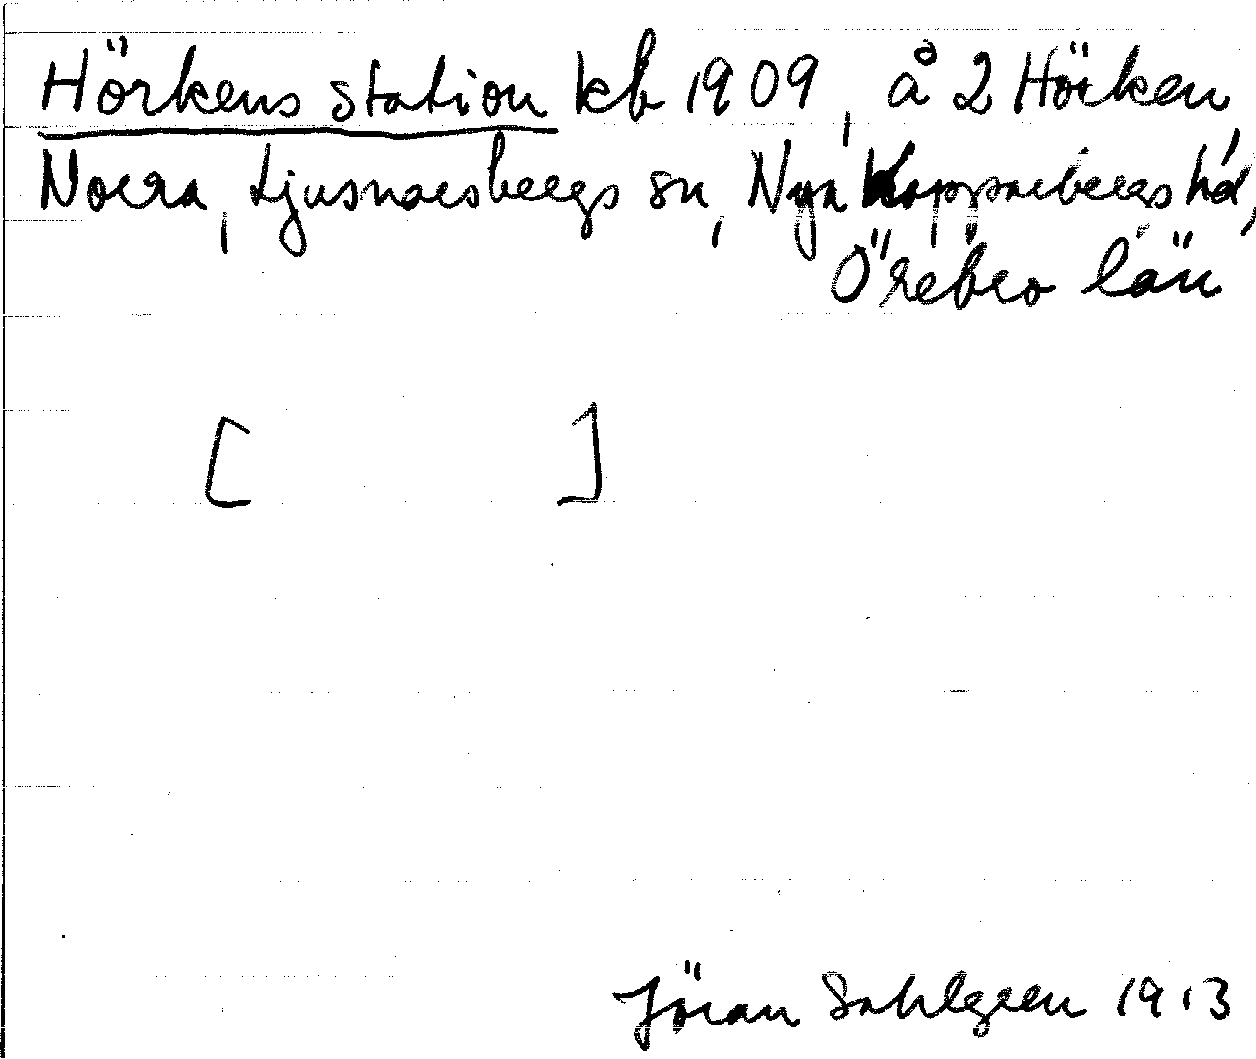 Hörkens station kb 1909, å 2 Hörken
Norra, Ljusnarsbergs sn, Nya Kopparbergs hd,
Örebro län
[ ]
Jöran Sahlgren 1913